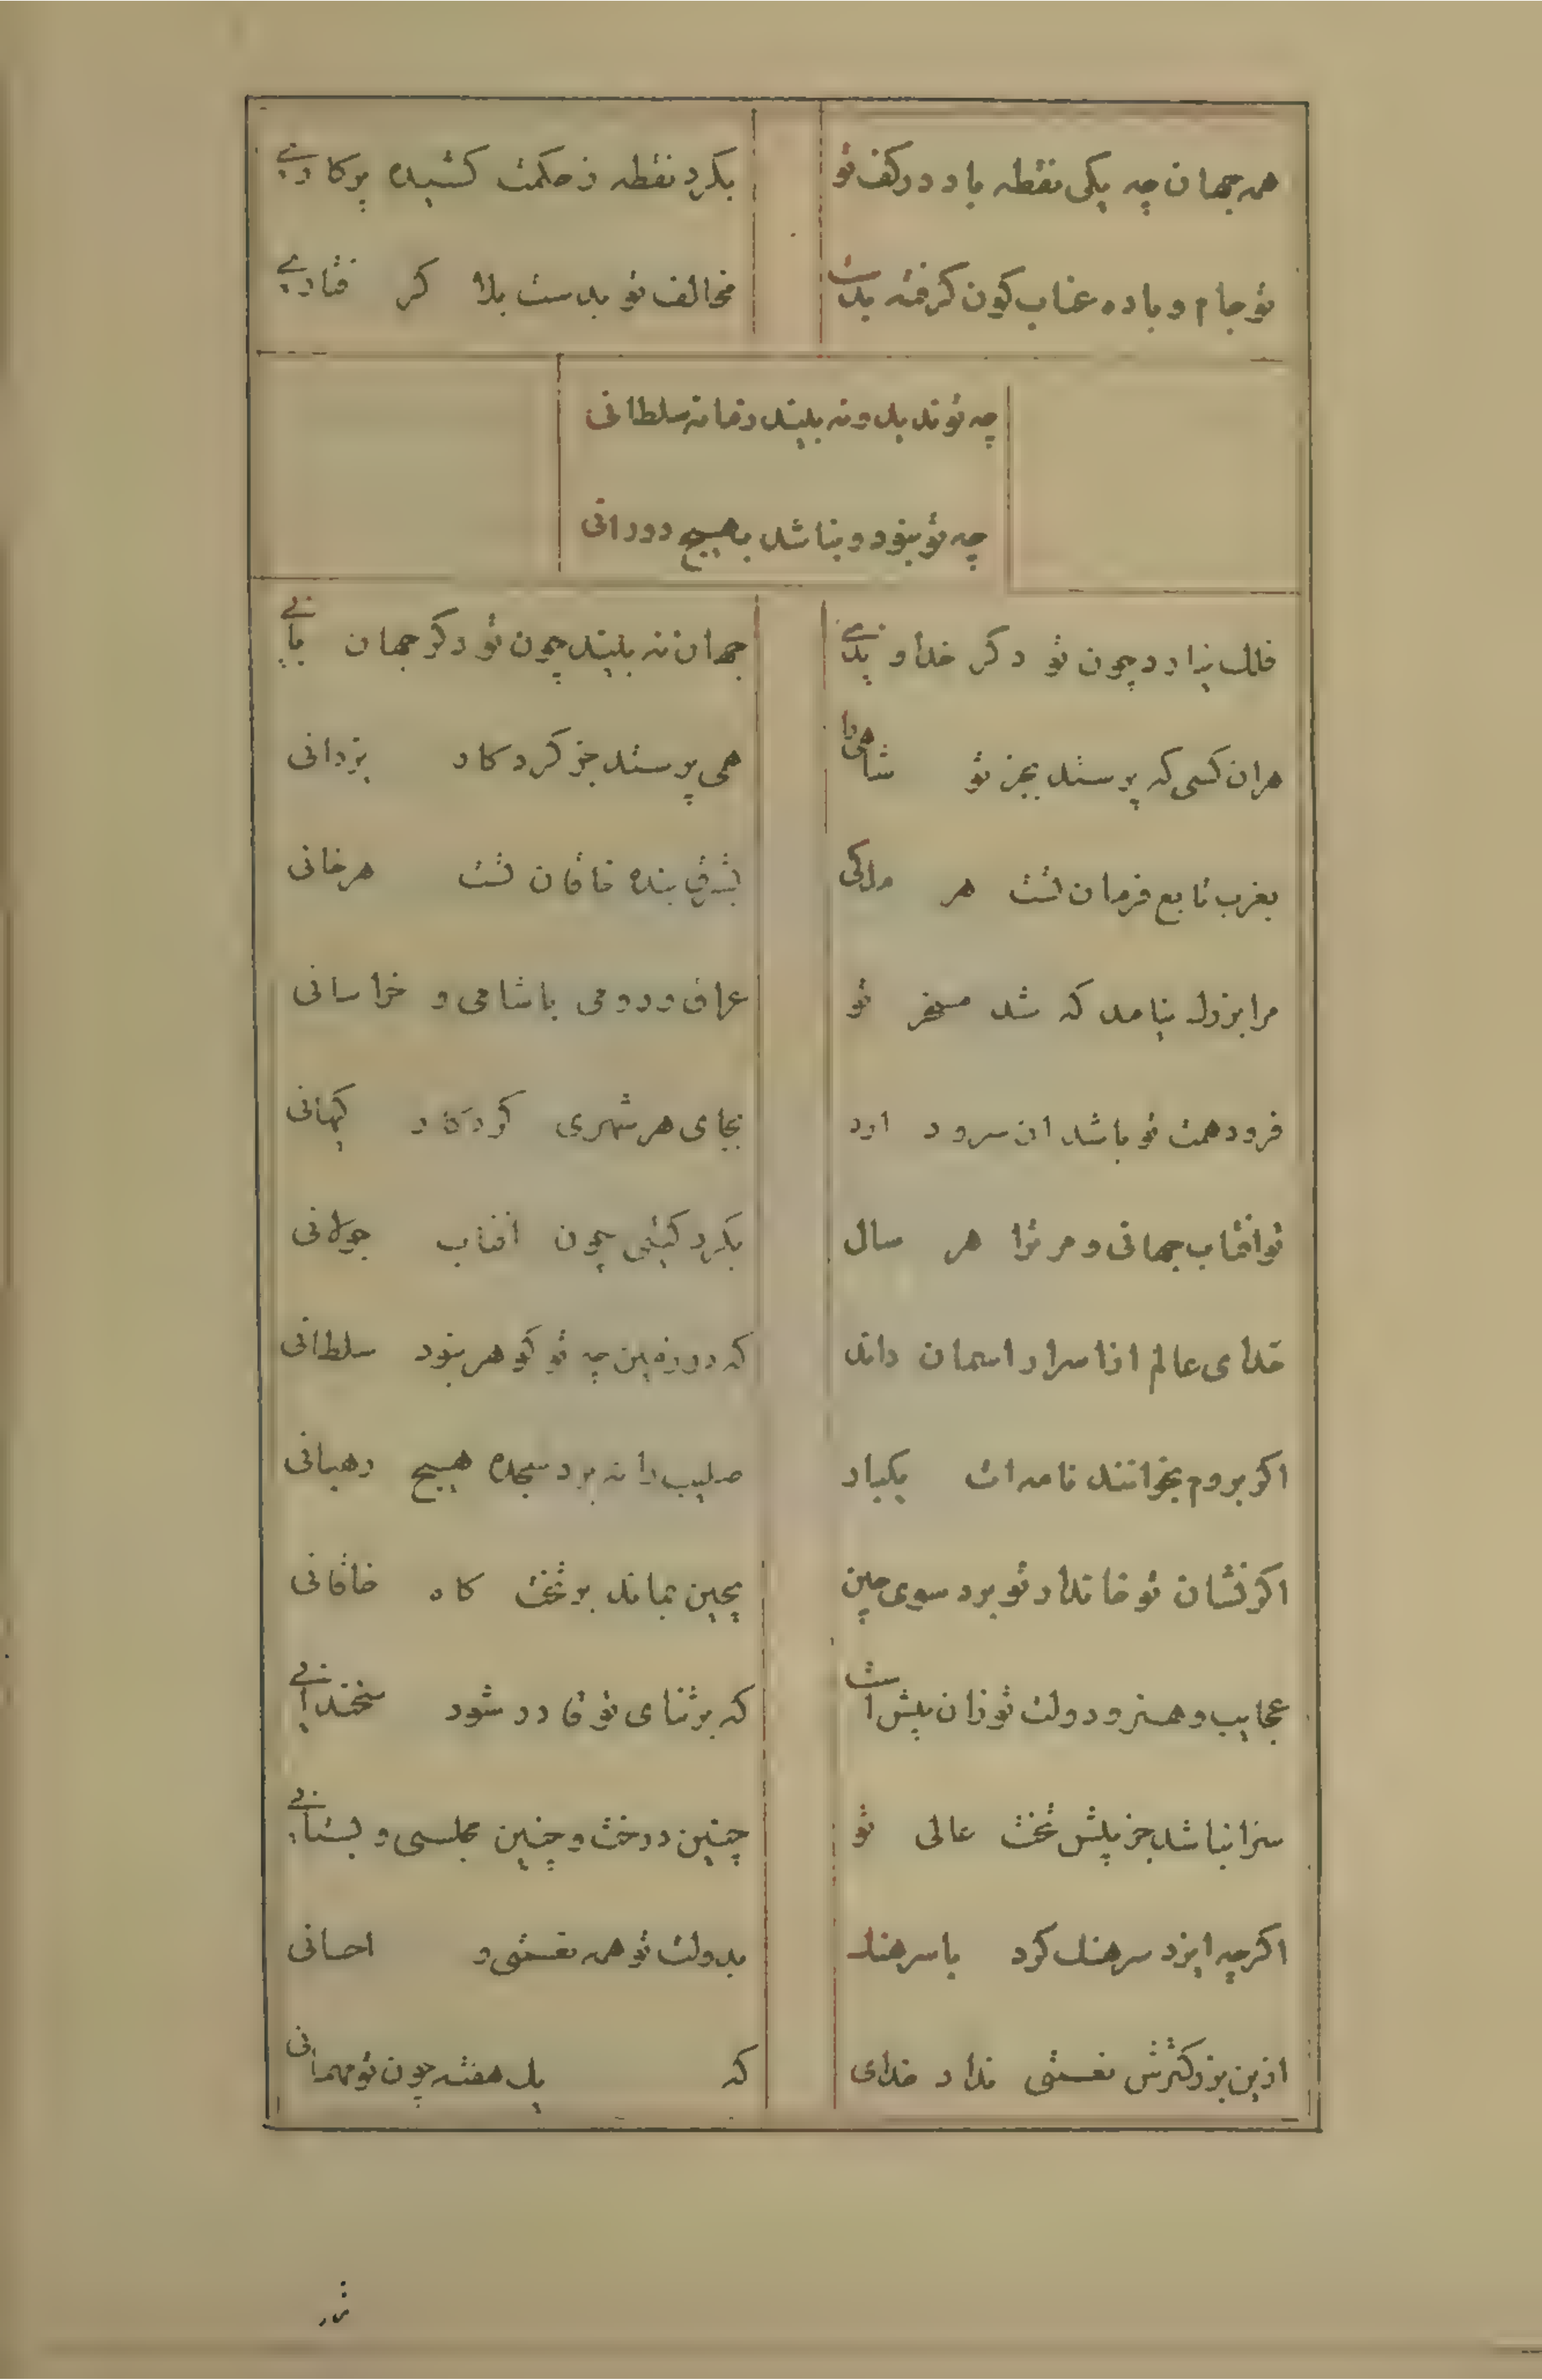 همه جهان چه یکی نقطه باد در کف تو
بکرد نقطه ز حکمت کشیده پرکاری
تو جام و باده عناب کون کرفته بدست
مخالف تو بدست بلا کر فتاری
چه تو ندید و نه بیند زمانه سلطانی
چه تو نبود و نباشد بهیچ دورانی
فلک نیارد چون تو دکر خداوندی
جهان نه بیند چون تو دکر جهان بانی
هران کسی که پرستد بجز تو شاهی را
همی پرستد جز کردکار یزدانی
بغرب تابع فرمان تست هر ملکی
بشرق بنده خاقان تست هر خانی
مرا بزول نیامد که شد مسخر تو
عراق و رومی با شامی و خراسانی
فرود همت تو باشد ان سرود ارد
بجای هر شهری کیهانی
تو افتاب جهانی و مر ترا هر سال
بکرد کیتی چون افتاب جولانی
خدای عالم از اسرار اسمان داند
که در زمین چه تو کوهر نبود سلطانی
اکر بروم بخوانند نامه ات یکبار
صلیب را نه برد سجده هیچ رهبانی
اکر نشان تو خاندار تو برد سوی چین
بچین نماند بر تخت کاه خاقانی
عجایب و هنر و دولت تو زان پیش است
که بر ثنای تو قادر شود سخندانی
سزا نباشد جز پیش تخت عالی تو
چنین درخت و چنین مجلسی و بستانی
اکرچه ایزد سرهنک کرد با سرهنک
بدولت تو همه نعمتی و احسانی
ازین بزرکترش نعمتی نداد خدای
که یک هفته چون تو مهمانی